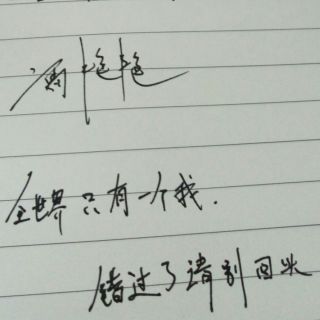 艳艳
全世界只有一个我.
错过了请别回头